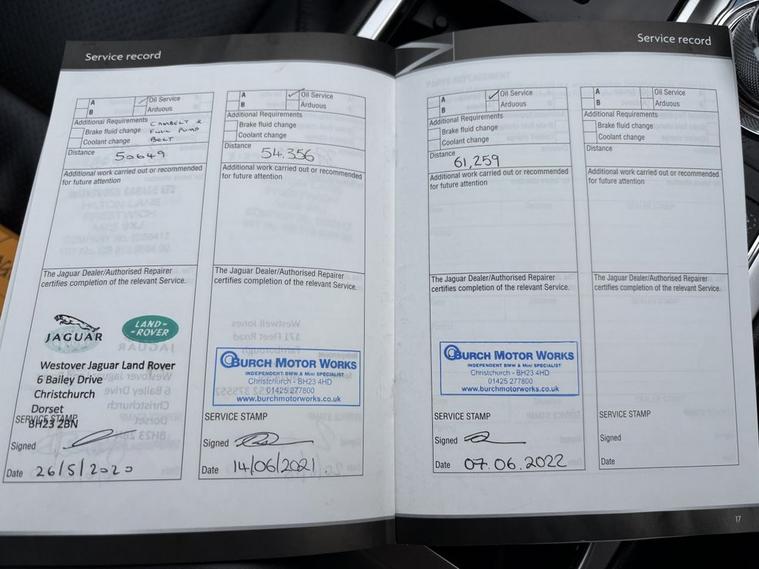 Service record
A Oil Service
B Arduous
Additional Requirements CAMBELT &
Brake fluid change FUEL PUMP
Coolant change BELT
Distance 50649
Additional work carried out or recommended
for future attention
The Jaguar Dealer/Authorised Repairer
certifies completion of the relevant Service.
JAGUAR
LAND-
ROVER
Westover Jaguar Land Rover
6 Bailey Drive
Christchurch
Dorset
SERVICE STAMP
BH23 2BN
Signed
Date 26/5/2020
A Oil Service
B Arduous
Additional Requirements
Brake fluid change
Coolant change
Distance 54,356
Additional work carried out or recommended
for future attention
The Jaguar Dealer/Authorised Repairer
certifies completion of the relevant Service.
BURCH MOTOR WORKS
INDEPENDENT BMW & Mini SPECIALIST
Christchurch - BH23 4HD
01425 277800
www.burchmotorworks.co.uk
SERVICE STAMP
Signed
Date 14/06/2021
Service record
A Oil Service
B Arduous
Additional Requirements
Brake fluid change
Coolant change
Distance
61,259
Additional work carried out or recommended
for future attention
The Jaguar Dealer/Authorised Repairer
certifies completion of the relevant Service.
BURCH MOTOR WORKS
INDEPENDENT BMW & Mini SPECIALIST
Christchurch - BH23 4HD
01425 277800
www.burchmotorworks.co.uk
SERVICE STAMP
Signed
Date 07.06.2022
A Oil Service
B Arduous
Additional Requirements
Brake fluid change
Coolant change
Distance
Additional work carried out or recommended
for future attention
The Jaguar Dealer/Authorised Repairer
certifies completion of the relevant Service.
SERVICE STAMP
Signed
Date
17